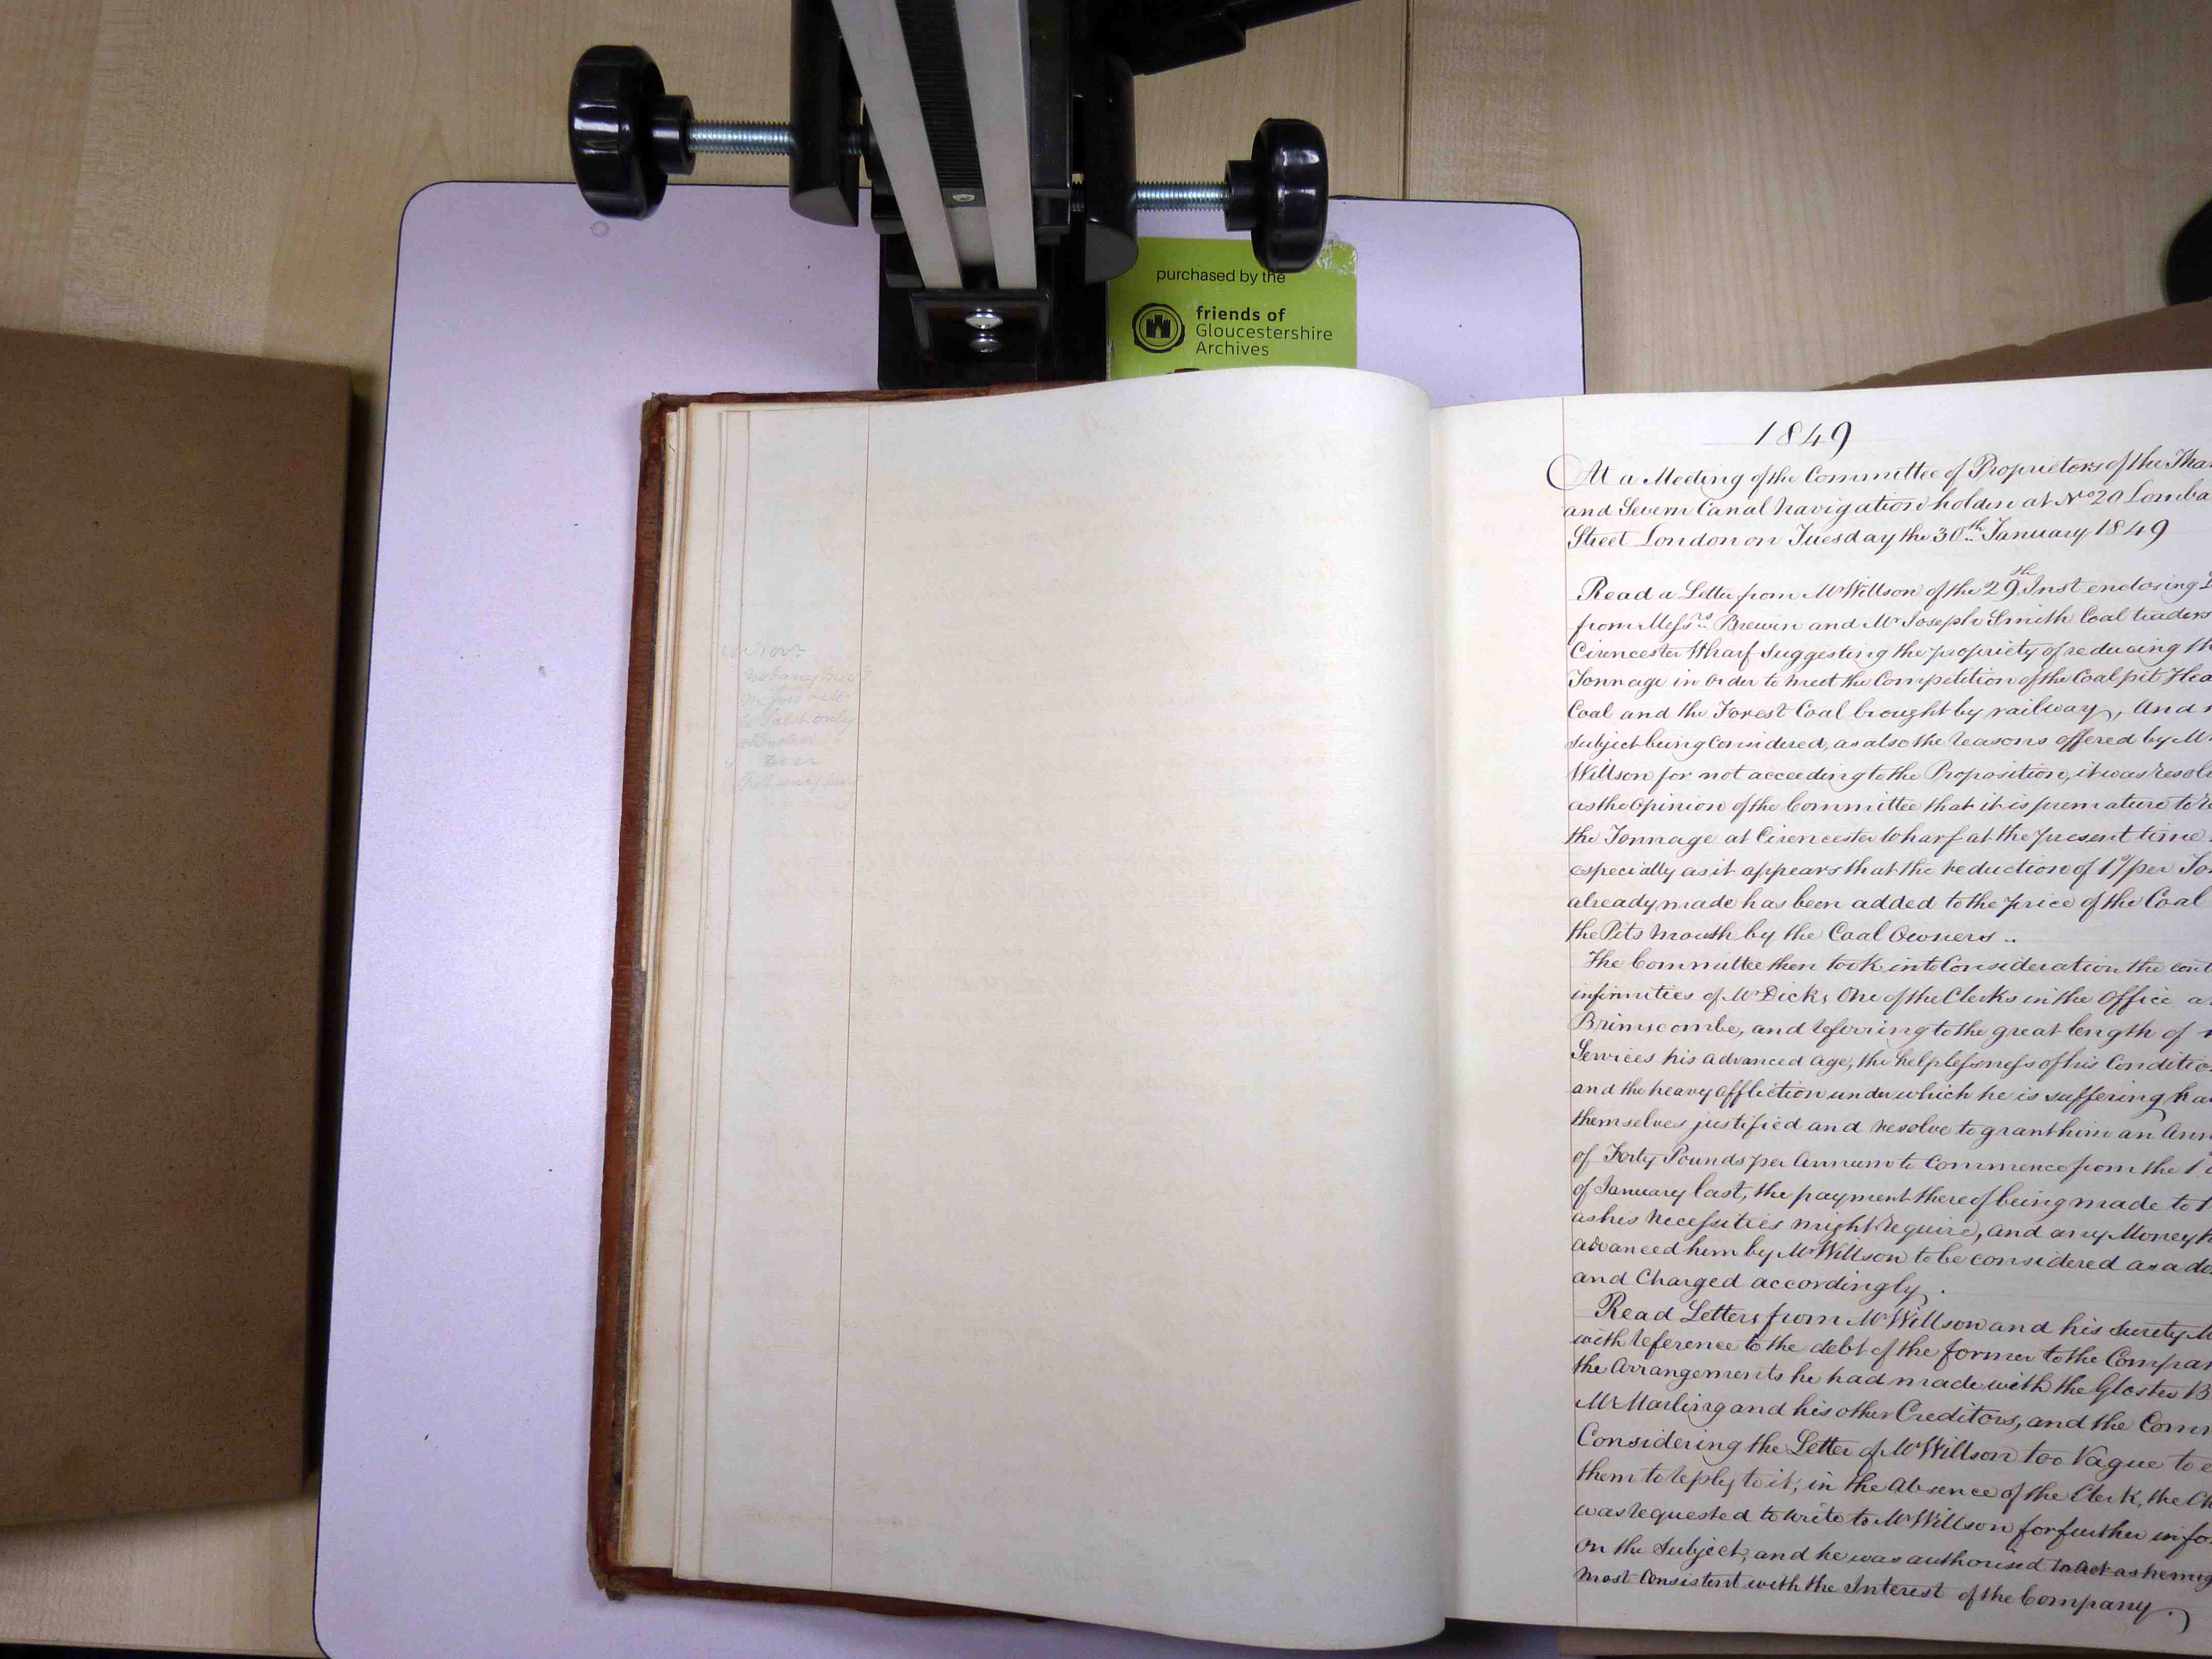 purchased by the
friends of
Gloucestershire
Archives
1849
At a Meeting of the Committee of Proprietors of the
and Severn Canal Navigation holden at No 20
Street London on Tuesday the 30th January 1849
Read a Letter from Mr Willson of the 29th Inst enclosing
from Messrs Brewin and Mr Joseph Smith Coal traders
Cirencester Wharf Suggesting the propriety of reducing
Tonnage in order to meet the Competition of the Coal pit
Coal and the Forest Coal brought by railway, And
subject being Considered, as also the reasons offered by
Willson for not acceeding to the Proposition, it was
as the Opinion of the Committee that it is premature to
the Tonnage at Cirencester Wharf at the present time
especially as it appears that the reduction of 1/ per
already made has been added to the price of the Coal
the Pits Mouth by the Coal Owners ..
The Committee then took into Consideration the
infirmities of Mr Dicks One of the Clerks in the Office
Brimscombe, and referring to the great length of
Services his advanced age, the helplessness of his
and the heavy affliction under which he is suffering
themselves justified and resolve to grant him an
of Forty Pounds per Annum to Commence from the
of January last, the payment thereof being made to
as his Necessities might require, and any Money
advanced him by Mr Willson to be considered as a
and Charged accordingly .
Read Letters from Mr Willson and his surety
with reference to the debt of the former to the
the Arrangements he had made with the Gloster
Mr Marling and his other Creditors, and the
Considering the Letter of Mr Willson too Vague to
them to reply to it, in the Absence of the Clerk, the
was requested to write to Mr Willson for further
on the Subject, and he was authorised to act as he
most Consistent with the Interest of the Company .